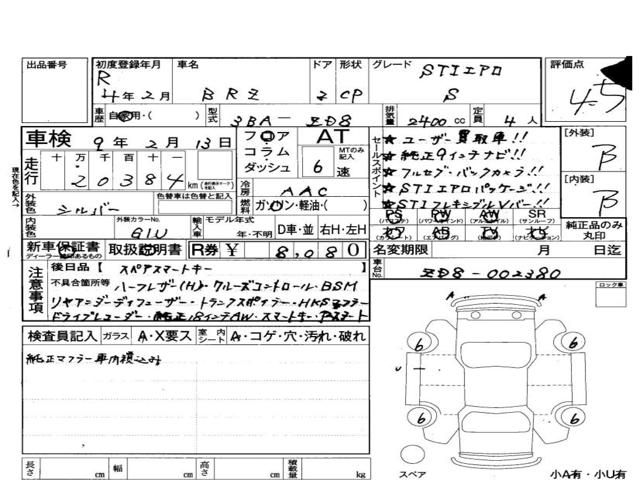 出品番号 初度登録年月 車名 ドア 形状 グレード 評価点
R 4年 2月 BRZ 2 CP STIエアロ S 4.5
車歴 自家用・( ) 型式 3BA-ZD8 排気量 2400cc 定員 4人
車検 9年 2月 13日 フロア コラム ダッシュ AT MTのみ記入 6速
セールスポイント
★ユーザー買取車!!
★純正9インチナビ!!
★フルセグ・バックカメラ!!
★STIエアロパッケージ!!
★STIフレキシブルVバー!!
[外装] B
[内装] B
走行 十 万 千 百 十 一
20384 km
冷房 AAC
燃料 ガソリン・軽油・( )
外装色 シルバー 色替車は色替と記入
内装色 外装カラーNo. G1U 輸入車 モデル年式 年・不明 D車・並 右H・左H
PS (パワステ) PW (パワーウインド) AW (アルミホイル) SR (サンルーフ)
純正品のみ丸印
新車保証書 ディーラー印のあるもの 取扱説明書 R券 ¥ 8,080 名変期限 月 日迄
注意事項
後日品【 スペアスマートキー
不具合箇所等 ハーフレザー(H)・クルーズコントロール・BSM
リヤアンダーディフューザー・トランクスポイラー・HKSマフラー
ドライブレコーダー・純正18インチAW・スマートキー・アスタート
車台No. ZD8-002380
ロック車
検査員記入 ガラス A・X要ス 室内シート A・コゲ・穴・汚れ・破れ
純正マフラー車内積込み
A A
6 6
U
6 6
スペア
小A有・小U有
長さ cm 幅 cm 高さ cm 積載量 kg
現在の色を記入→